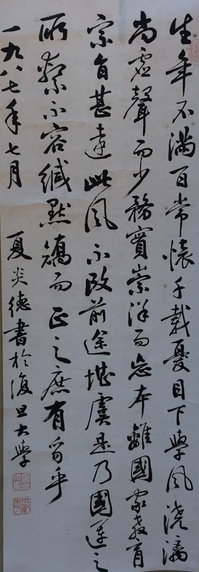 生年不滿百常懷千載憂目下學風澆漓
尚虛聲而少務實崇洋而忘本離國家教育
宗旨甚遠此風不改前途堪虞是乃國運之
所繫不容緘默矯而正之庶有豸乎
一九八七年七月
夏炎德書於復旦大學